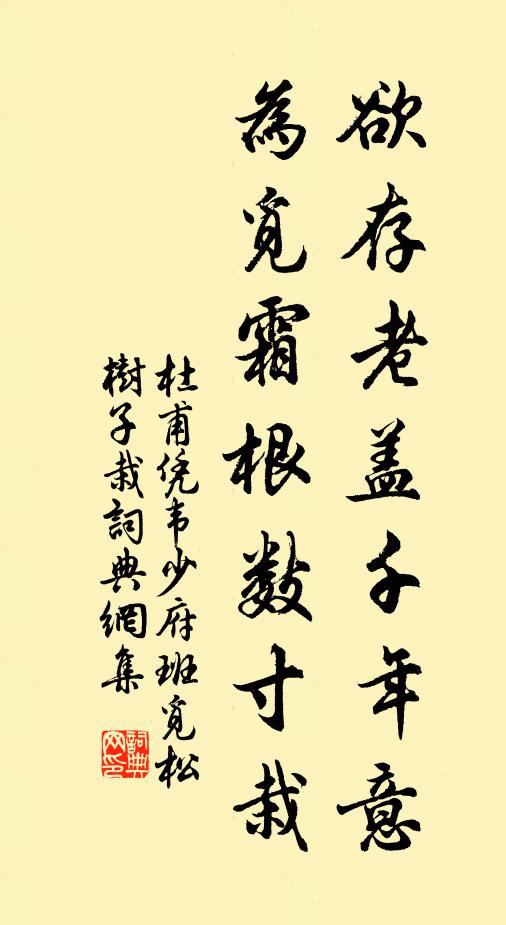 欲存老盖千年意
為覓霜根數寸栽
杜甫凭韦少府班覓松
樹子栽詞典網集
詞典網印